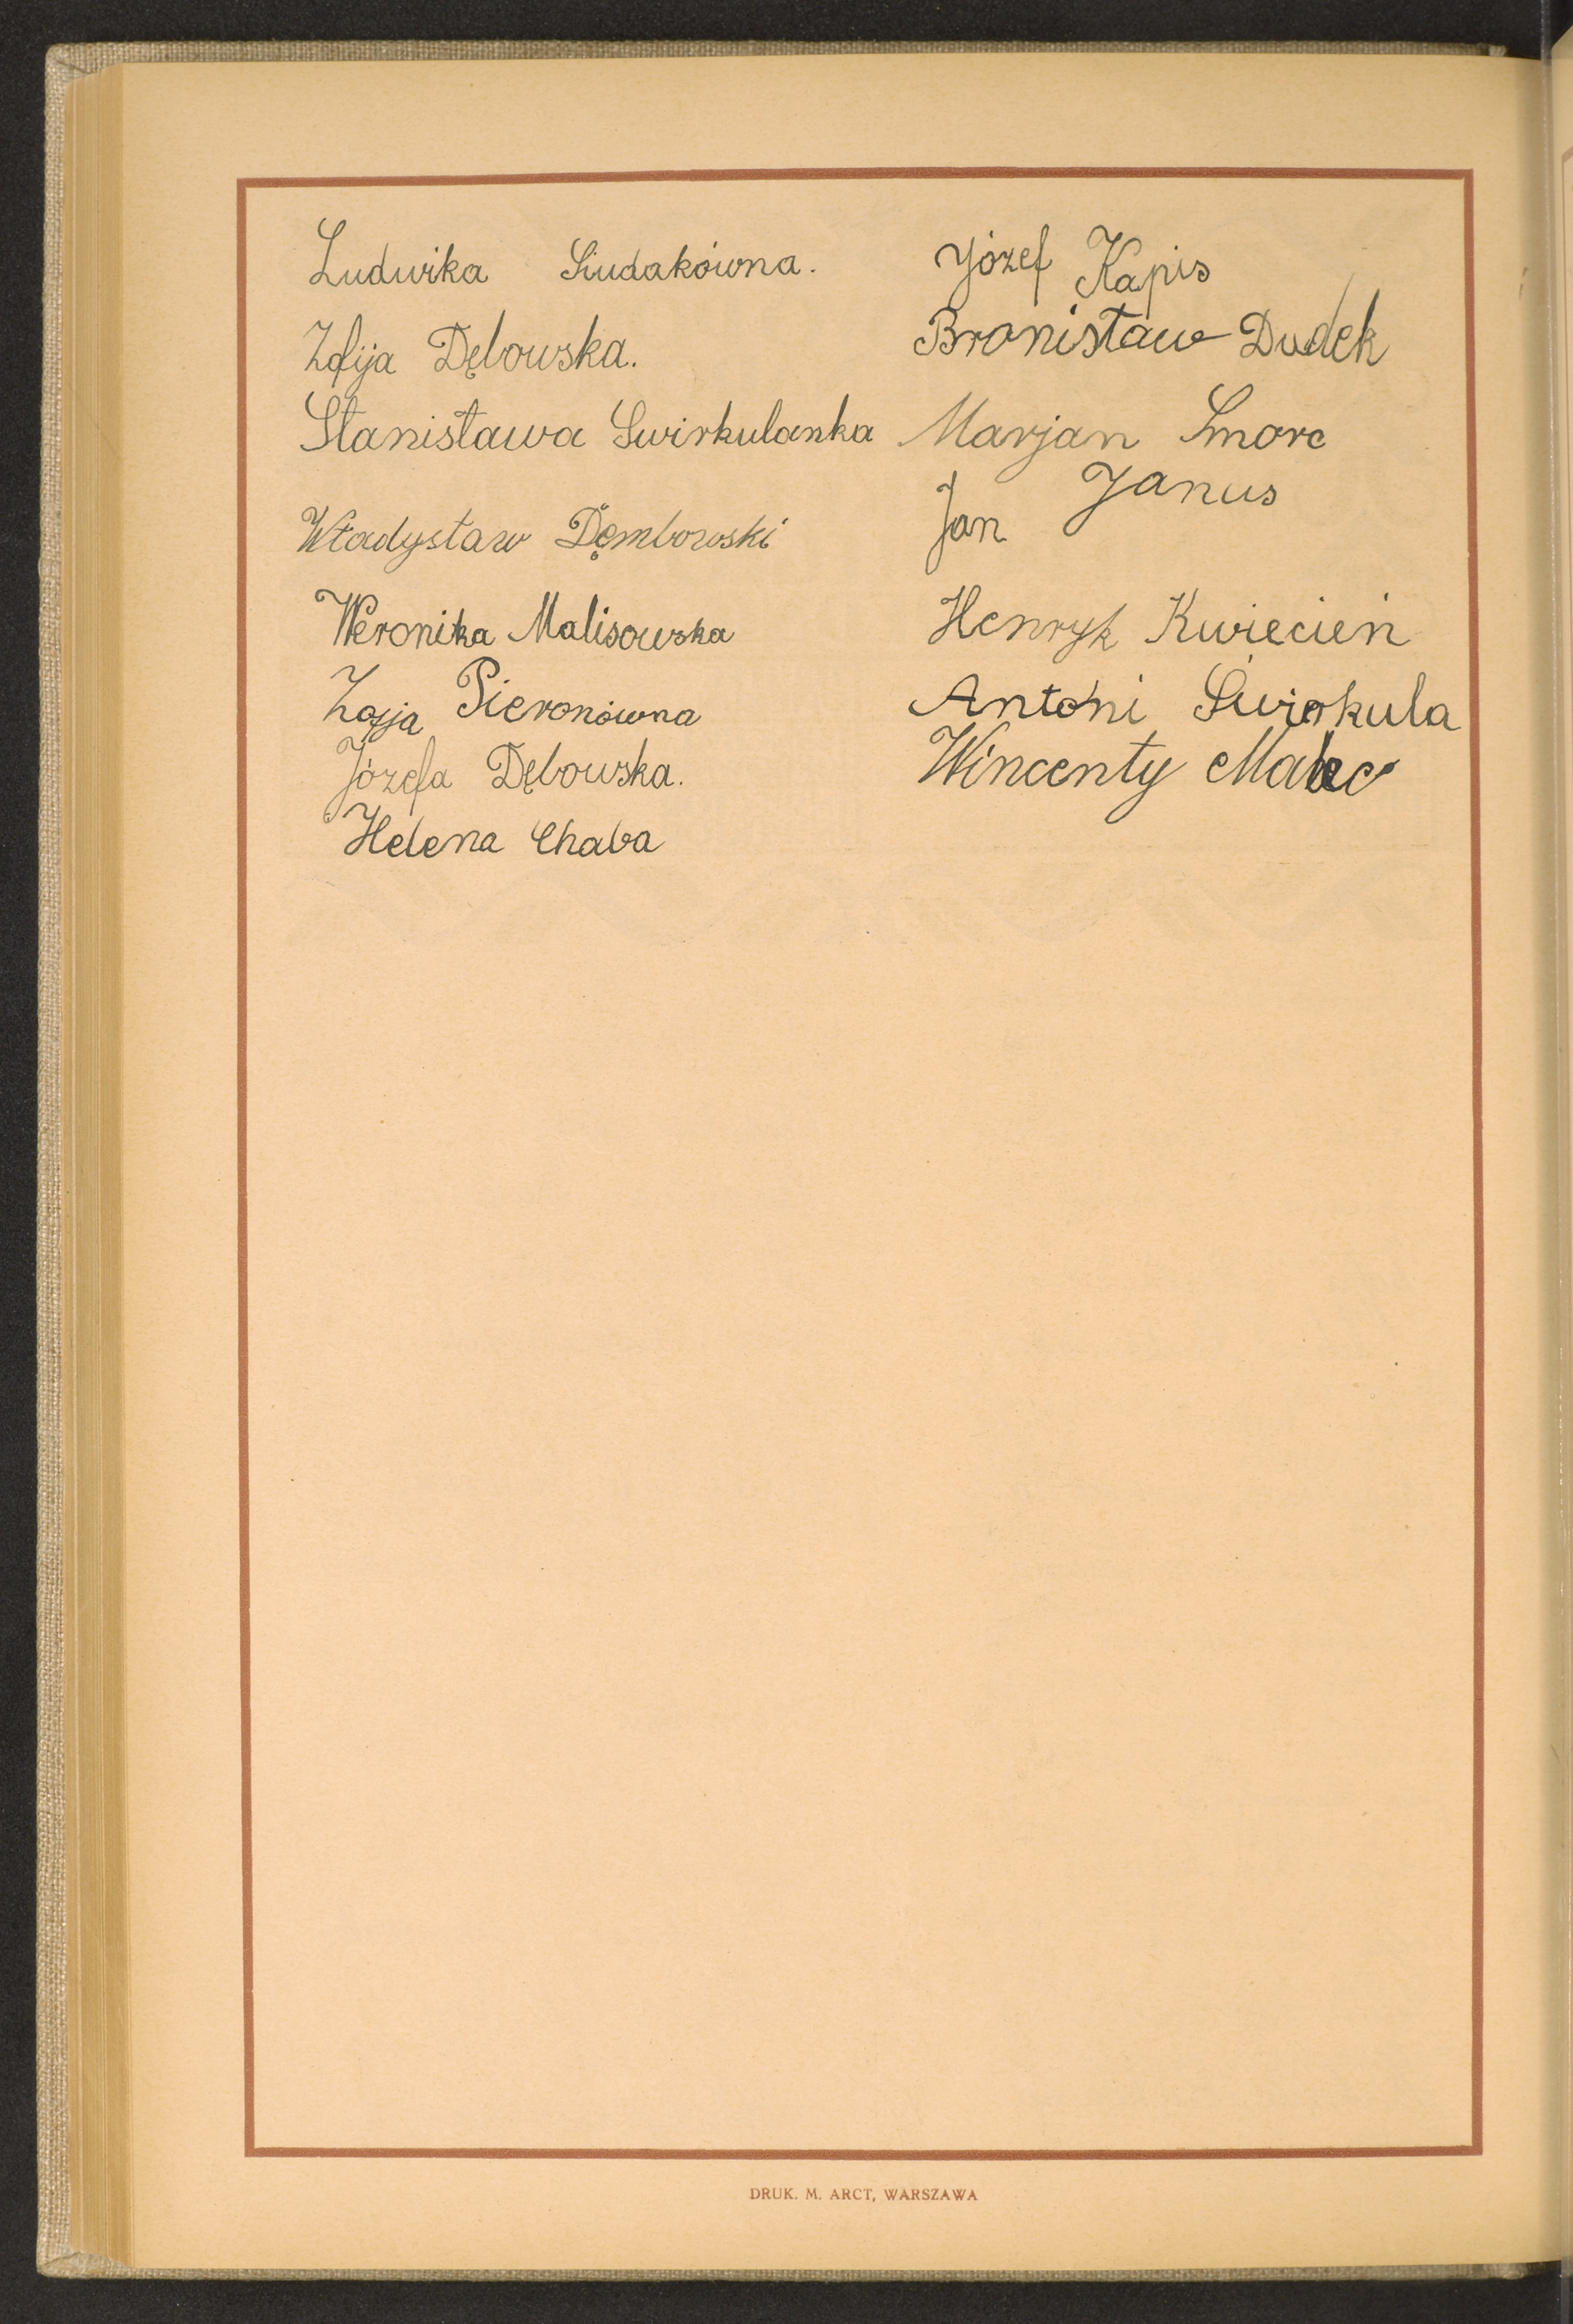 Ludwika Siudakówna.
Zofija Dębowska.
Stanisława Swirkulanka
Władysław Dęmbowski
Weronika Malisowska
Zosja Pieronówna
Józefa Dębowska.
Helena Chaba
Józef Kapis
Bronisław Dudek
Marjan Smorc
Jan Janus
Henryk Kwiecień
Antoni Świrkula
Wincenty Malec
DRUK. M. ARCT, WARSZAWA